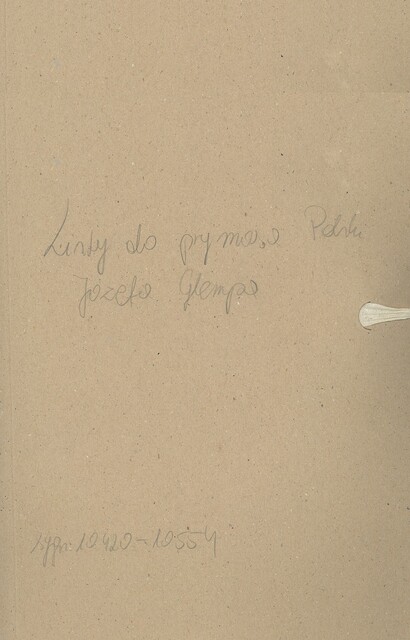 Listy do prymasa Polski
Józefa Glempa
sygn. 10420-10554